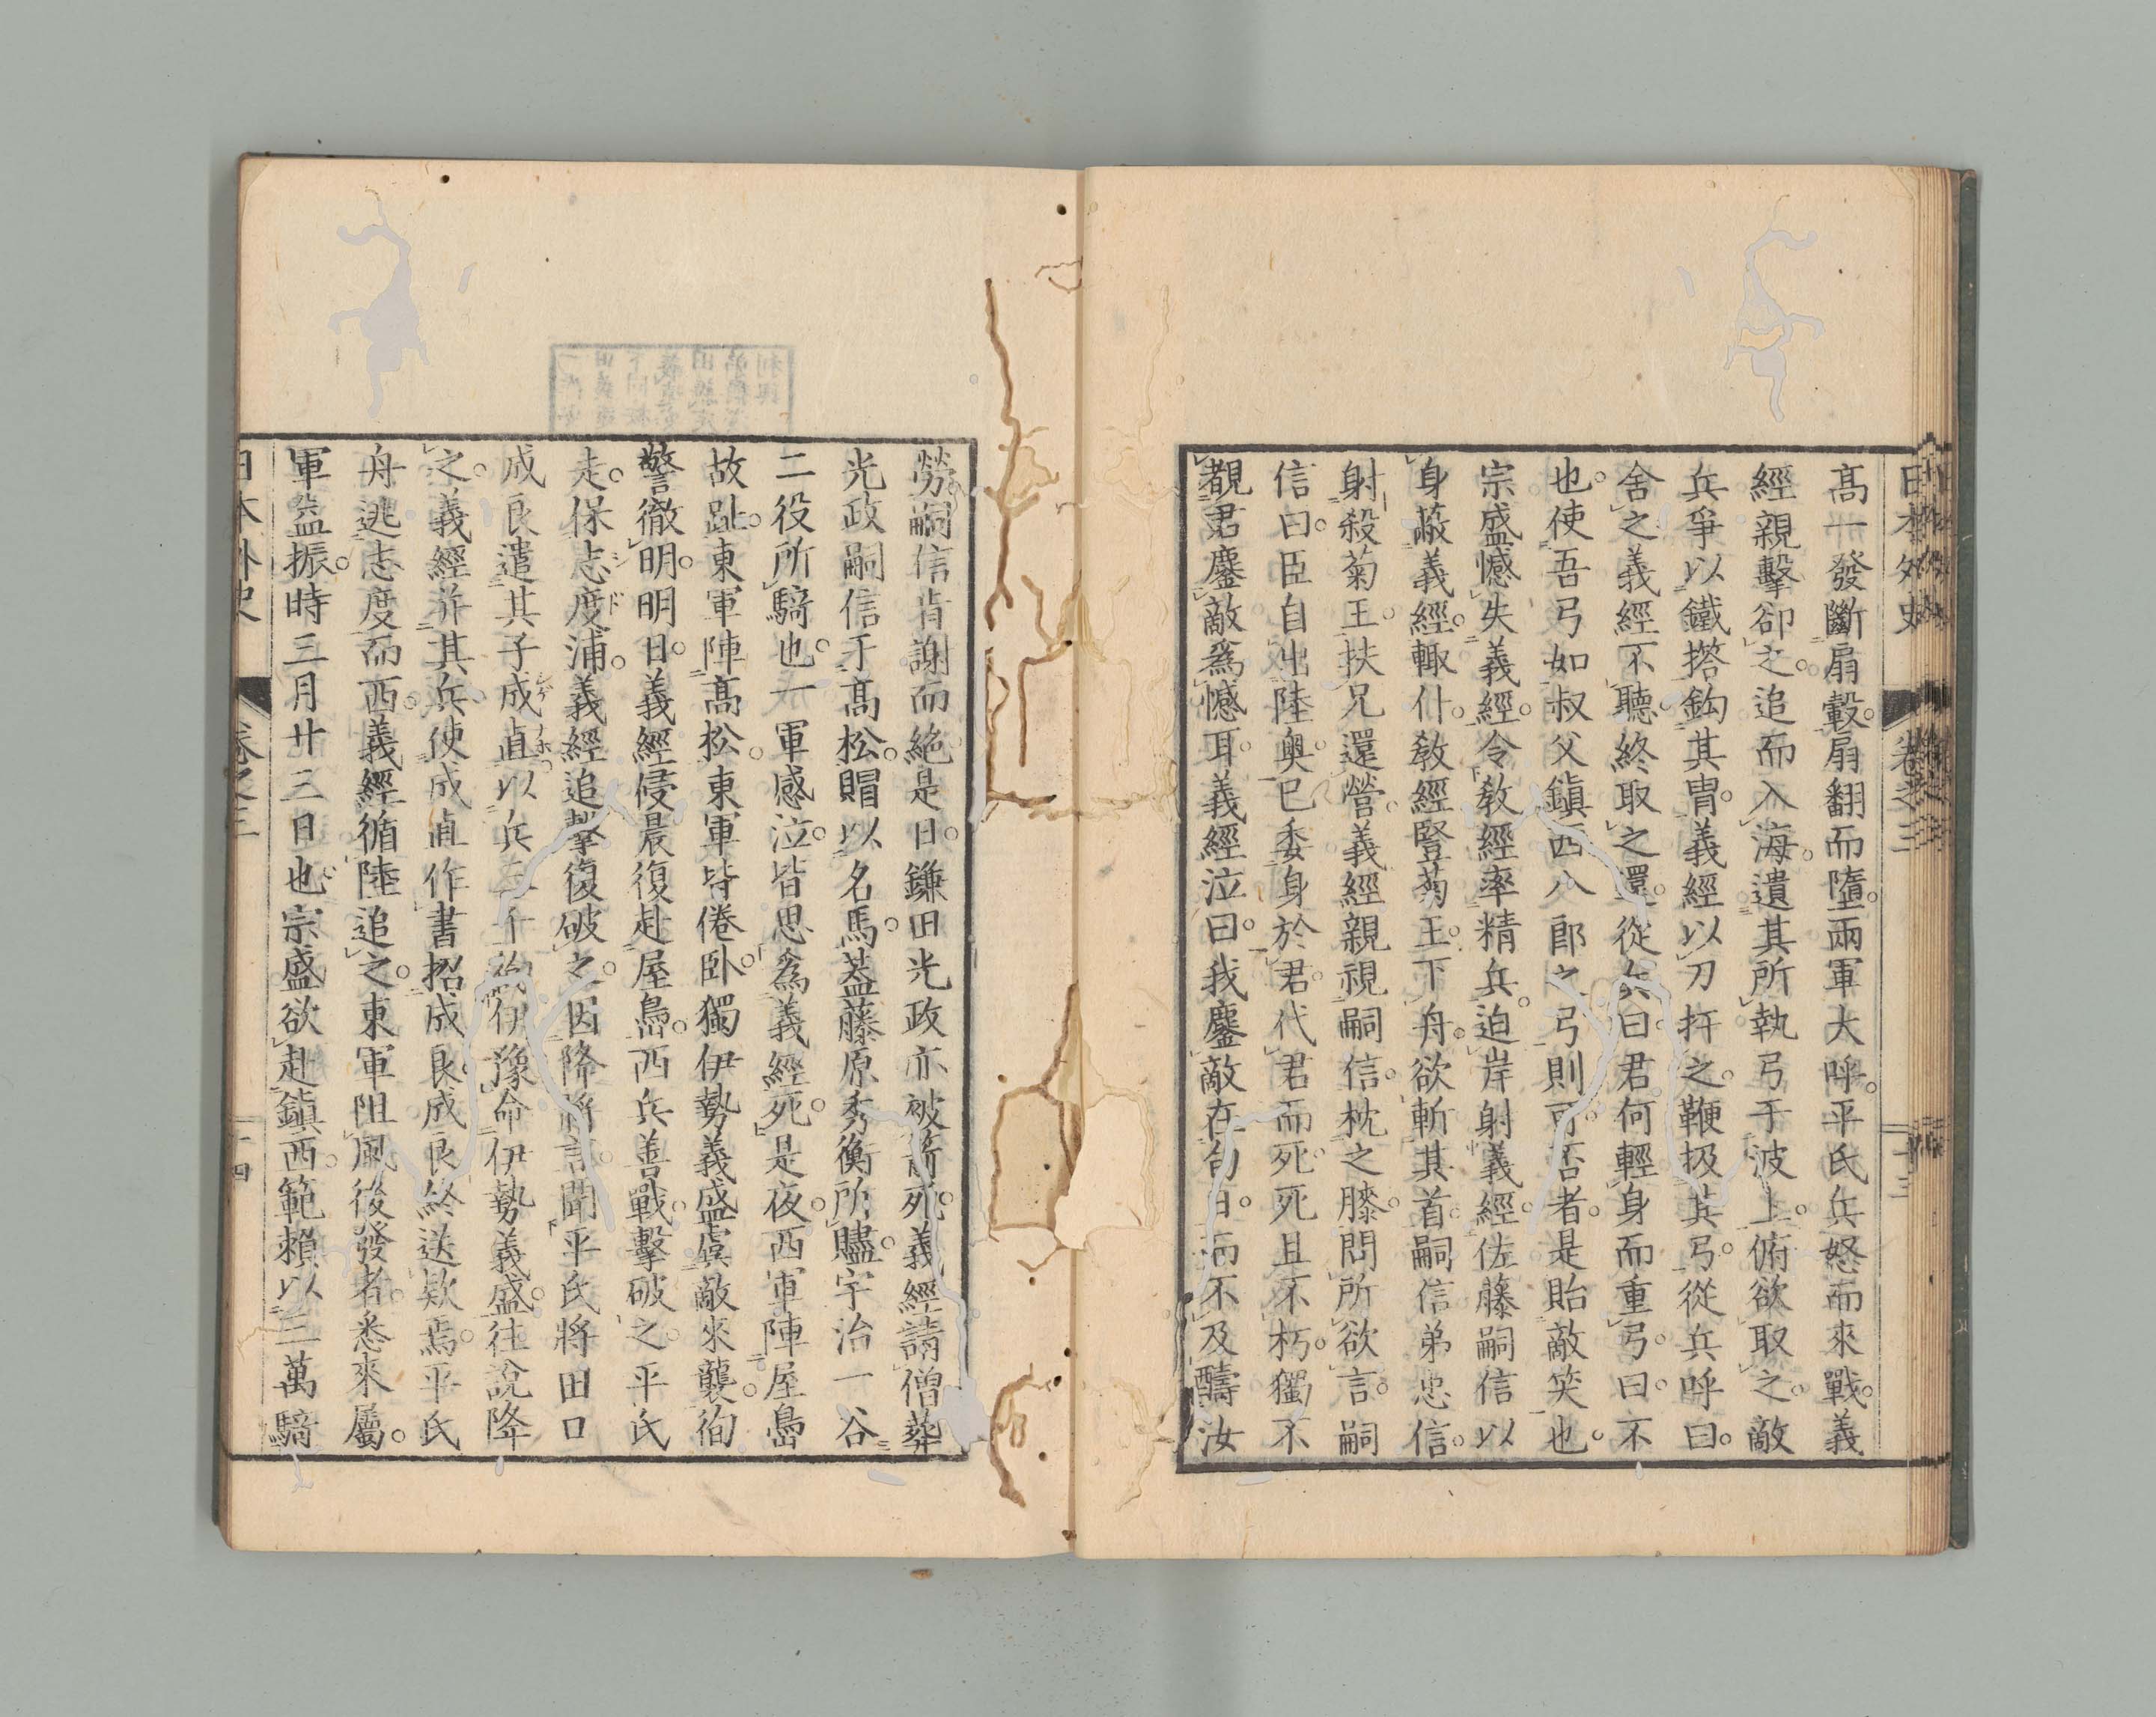 日本外史 卷之三 十三
高一發斷扇轂。扇翻而墮。兩軍大呼。平氏兵怒而來戰。義
經親擊卻之。追而入海。遺其所執弓于波上。俯欲取之。敵
兵爭以鐵搭鈎其冑。義經以刀扞之。鞭扱其弓。從兵呼曰。
舍之義經不聽。終取之還。從兵曰。君何輕身而重弓。曰。不
也。使吾弓如叔父鎭西八郎之弓則可。否者是貽敵笑也。
宗盛憾失義經。令敎經率精兵。迫岸射義經。佐藤嗣信以
身蔽義經。輙仆。敎經豎菊王。下舟。欲斬其首。嗣信弟忠信。
射殺菊王。扶兄還營。義經親視嗣信。枕之膝。問所欲言。嗣
信曰。臣自出陸奧。已委身於君。代君而死。死且不朽。獨不
覩君鏖敵爲憾耳。義經泣曰。我鏖敵在旬日。而不及醻汝
勞。嗣信肯謝而絶。是日。鎌田光政亦被箭死。義經請僧葬
光政嗣信于高松。賵以名馬。葢藤原秀衡所贐。宇治一谷
二役所騎也。一軍感泣。皆思爲義經死。是夜。西軍陣屋島
故趾。東軍陣高松。東軍皆倦臥。獨伊勢義盛虞敵來襲。徇
警徹明。明日。義經侵晨復赴屋島。西兵善戰。擊破之。平氏
走。保志度浦。義經追擊復破之。因降將言。聞平氏將田口
成良遣其子成直以兵三千徇伊豫。命伊勢義盛。往說降
之。義經幷其兵。使成直作書招成良。成良終送欵焉。平氏
舟逃志度而西。義經循陸追之。東軍阻風後發者。悉來屬。
軍益振。時三月廿三日也。宗盛欲赴鎭西。範賴以三萬騎
日本外史 卷之三 十四